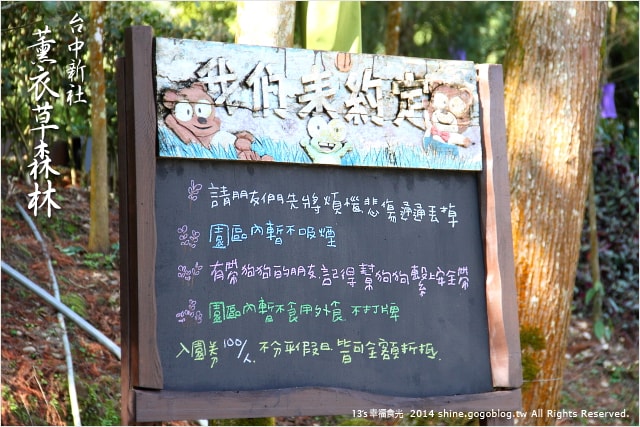 台中新社
薰衣草森林
我們來約定
請朋友們先將煩惱悲傷通通丟掉
園區內暫不吸煙
有帶狗狗的朋友記得幫狗狗繫上安全帶
園區內暫不食用外食 不打牌
入園券100/人. 不分平假日 皆可全額折抵.
13's 幸福食光 2014 shine.gogoblog.tw All Rights Reserved.